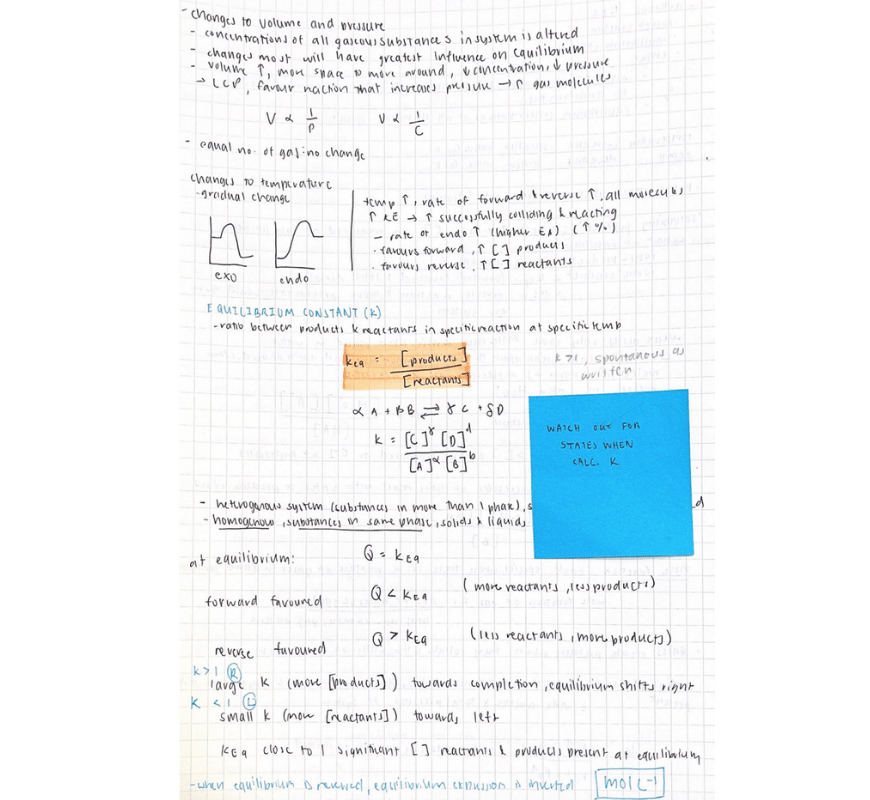 - changes to volume and pressure
- concentrations of all gaseous substances in system is altered
- changes most will have greatest influence on equilibrium
- volume ↑, more space to move around, ↓ concentration, ↓ pressure
→ LCP, favour reaction that increases pressure → ↑ gas molecules
V ∝ 1/P V ∝ 1/C
- equal no. of gas: no change
changes to temperature
- gradual change
temp ↑, rate of forward & reverse ↑, all molecules
↑ KE → ↑ successfully colliding & reacting
- rate of endo ↑ (higher EA) (↑%)
· favours forward, ↑ [ ] products
· favours reverse, ↑ [ ] reactants
exo endo
EQUILIBRIUM CONSTANT (K)
- ratio between products & reactants in specific reaction at specific temp
Keq = [products] / [reactants]
K >1, spontanous as
written
α A + β B ⇌ γ C + δ D
K = [C]^γ [D]^d / [A]^α [B]^b
WATCH OUT FOR
STATES WHEN
CALC. K
- heterogenous system (substances in more than 1 phase), s d
- homogenous, substances in same phase, solids & liquids
at equilibrium: Q = KEQ
forward favoured Q < KEQ (more reactants, less products)
reverse favoured Q > KEQ (less reactants, more products)
K > 1 R
large K (more [products]) towards completion, equilibrium shifts right
K < 1 L
small K (more [reactants]) towards left
KEQ close to 1 significant [ ] reactants & products present at equilibrium
- when equilibrium is reversed, equilibrium expression is inverted mol L⁻¹